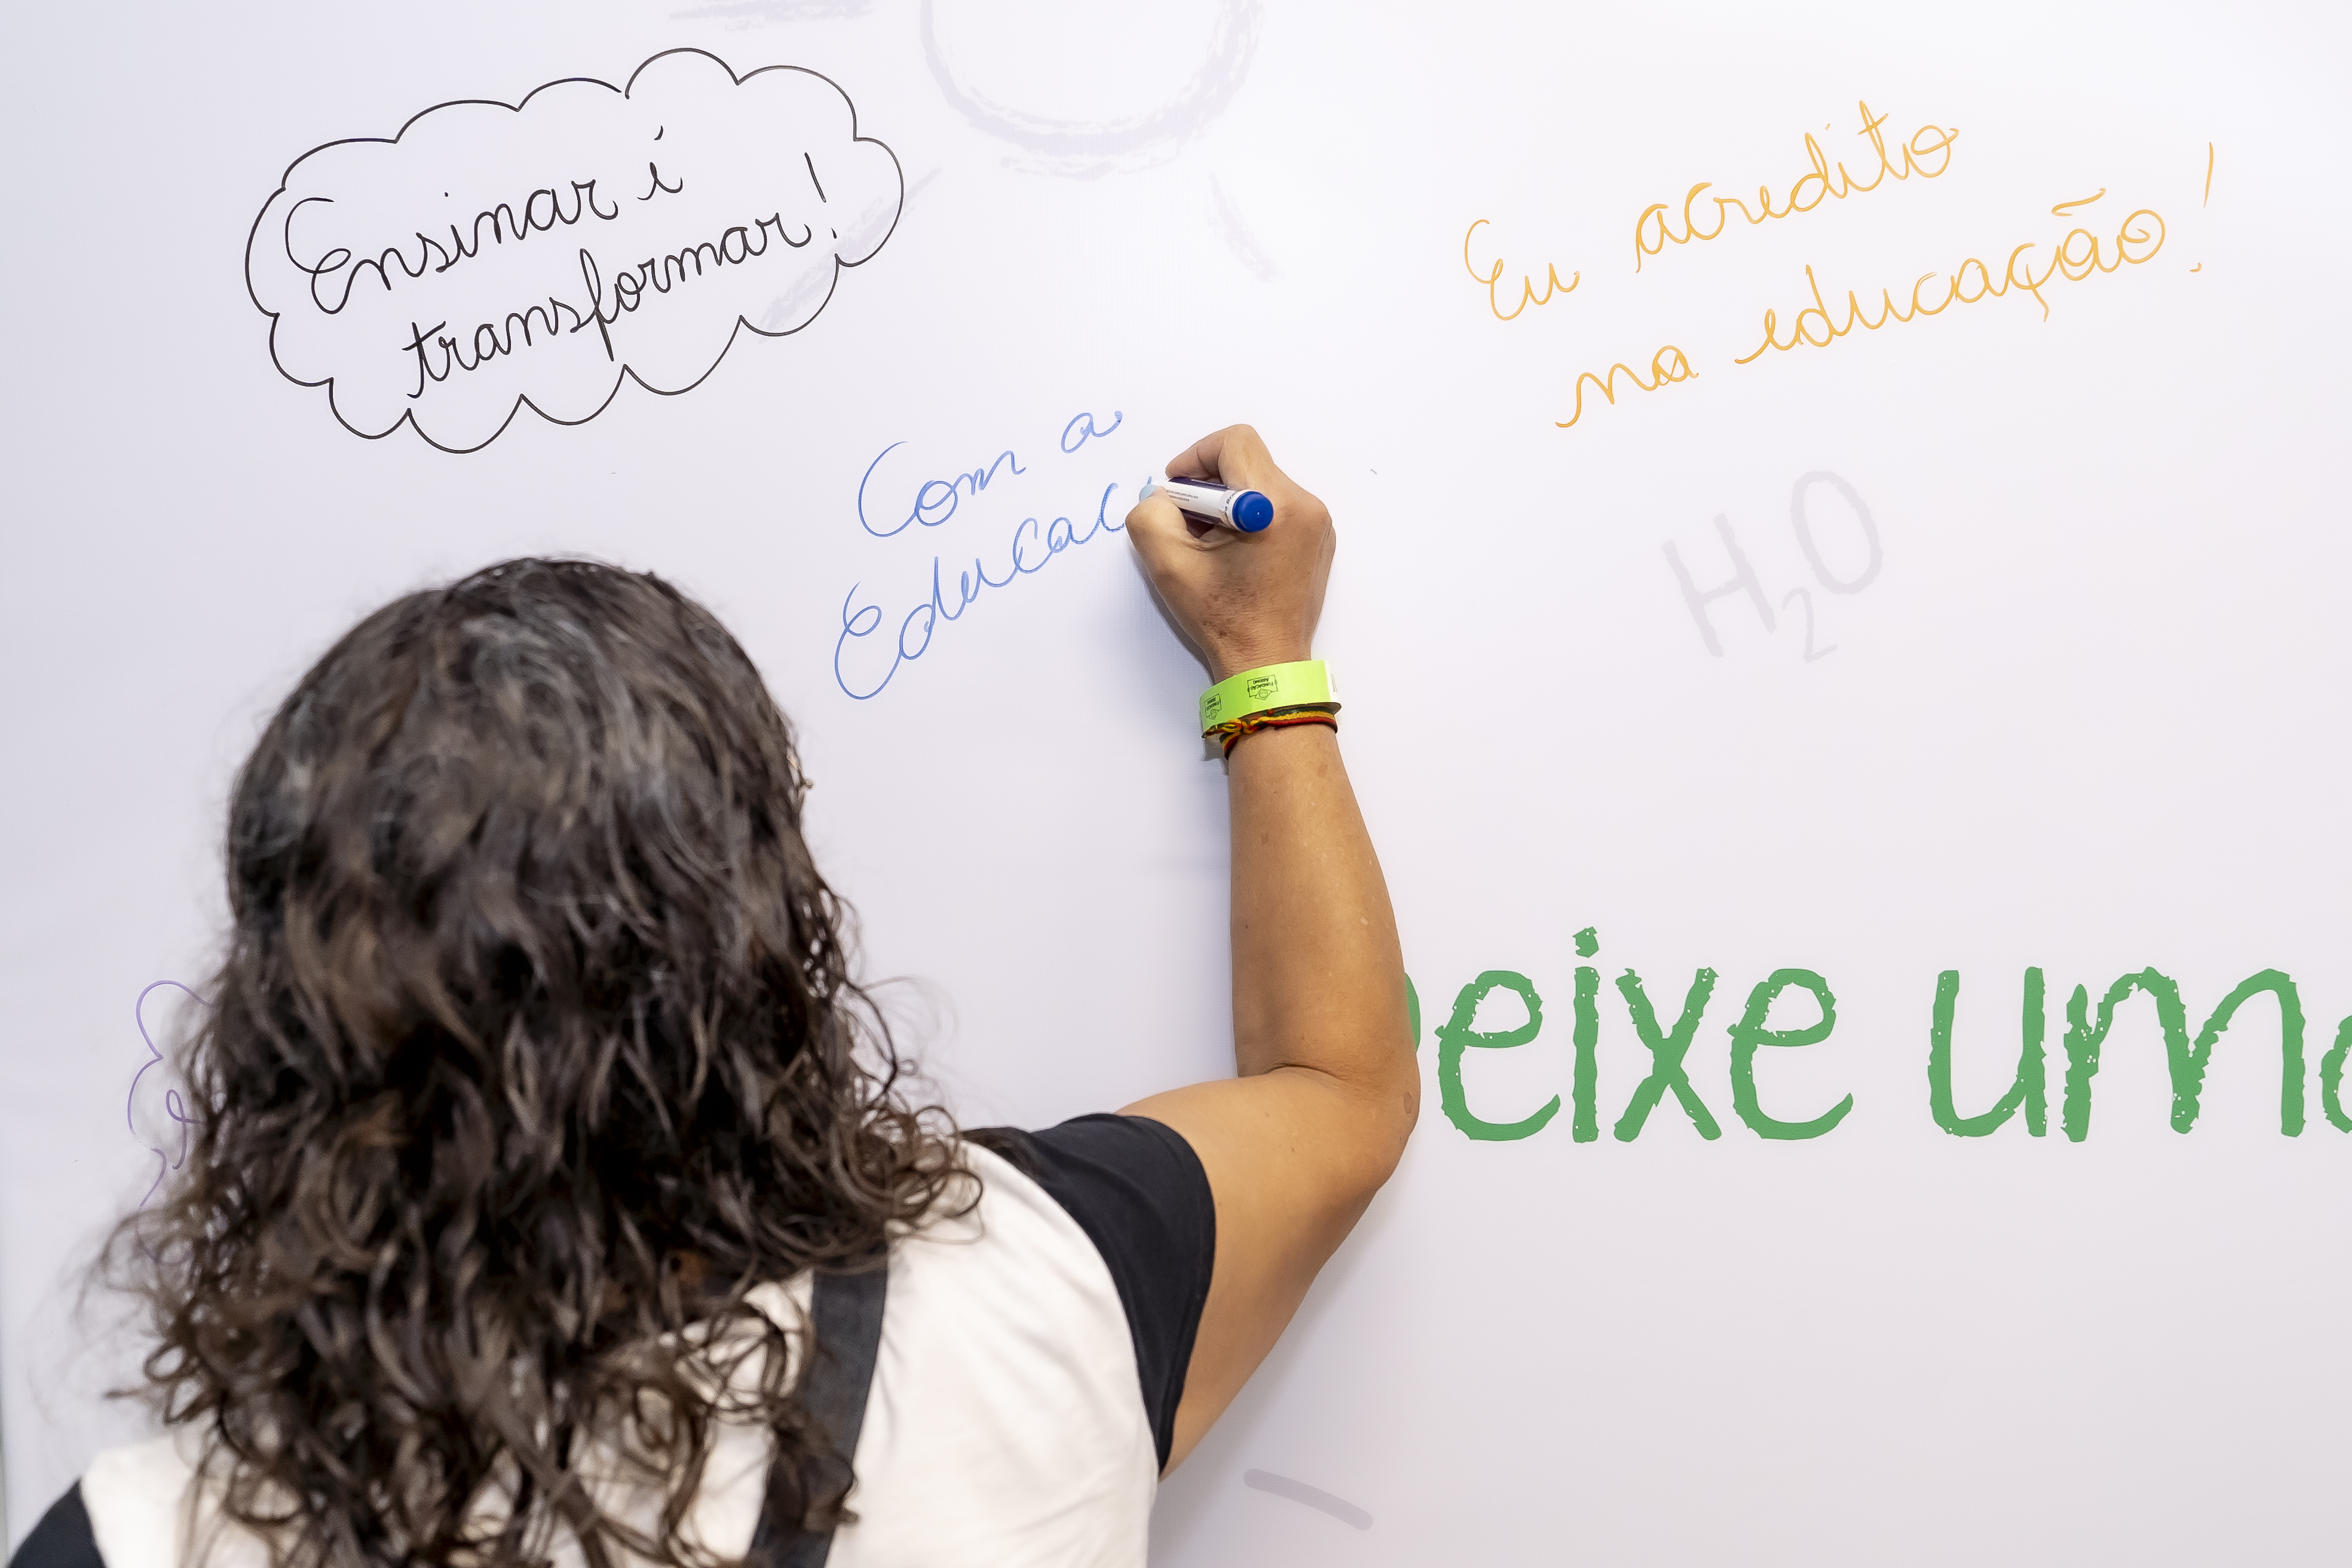 Ensinar é
transformar!
Eu acredito
na educação!
Com a
Educaç
H₂O
Deixe uma